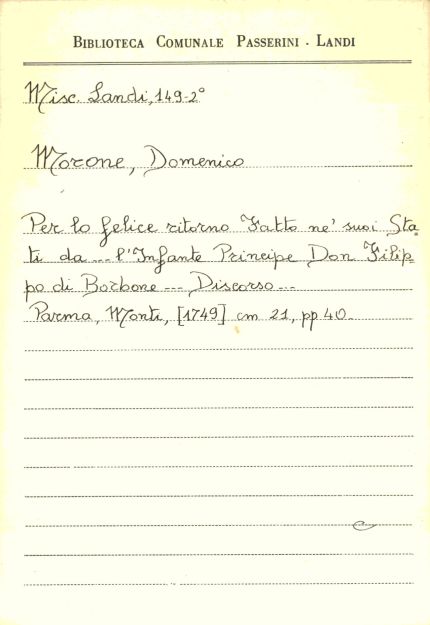 BIBLIOTECA COMUNALE PASSERINI - LANDI
Misc. Landi, 149-2°
Morone, Domenico
Per lo felice ritorno Fatto ne' suoi Sta-
ti da --- l'Infante Principe Don Filip-
po di Borbone --- Discorso ---
Parma, Monti, [1749] cm 21, pp 40.